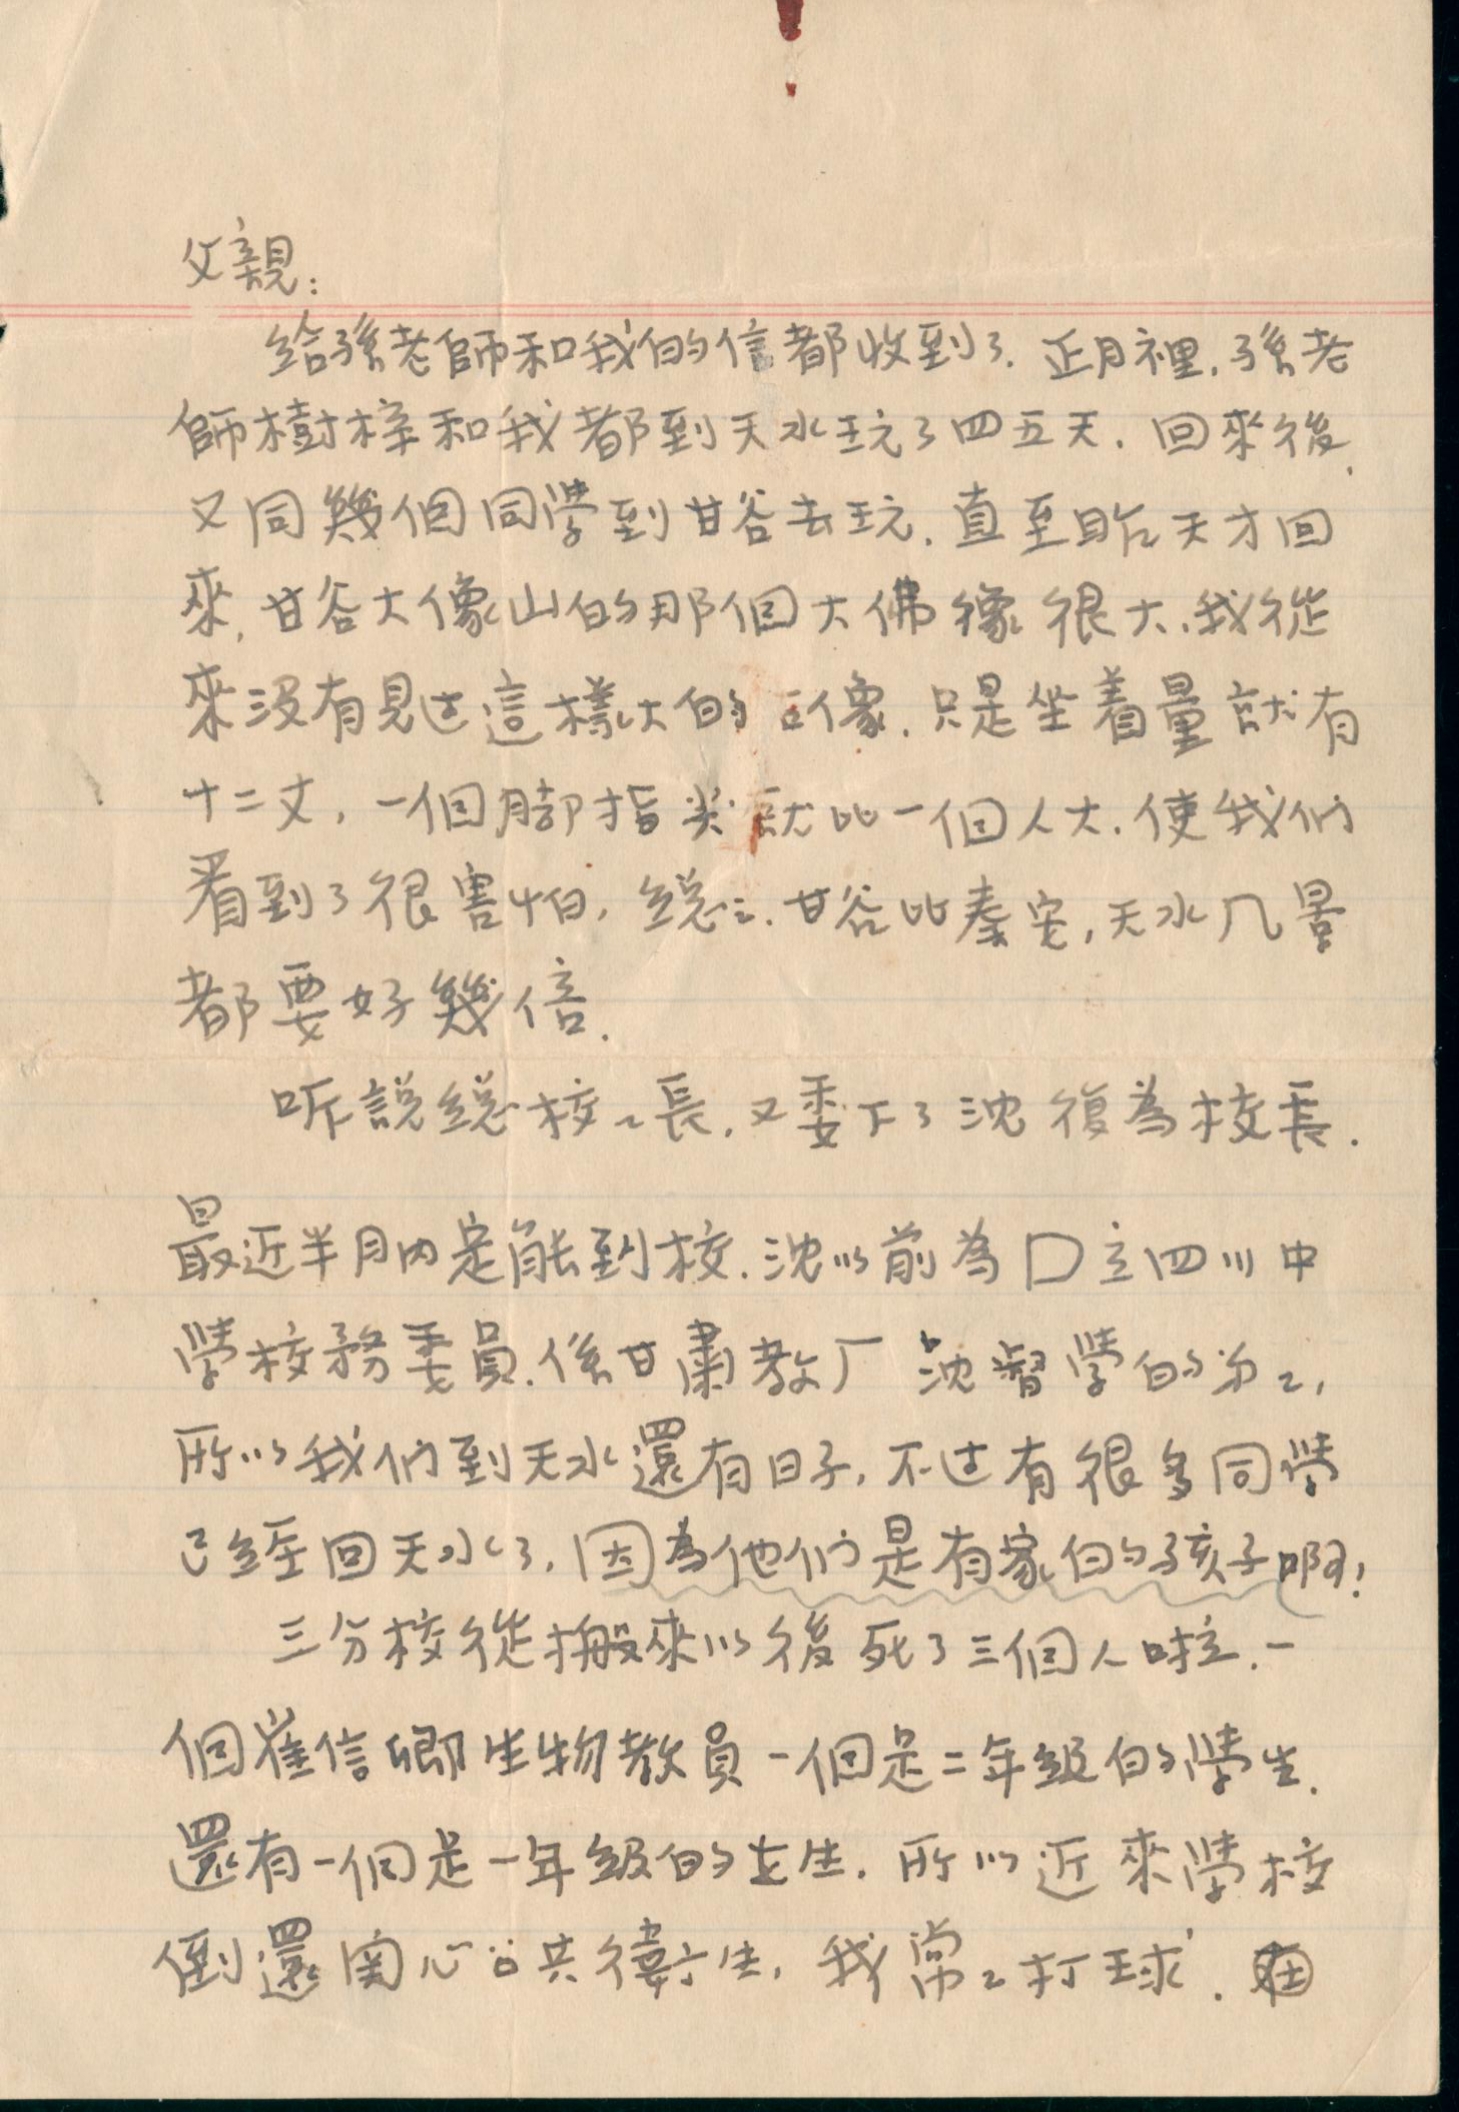 父親：
給孫老師和我的信都收到了．正月裡，孫老
師樹梓和我都到天水玩了四五天．回來後，
又同幾個同學到甘谷去玩．直至昨天才回
來，甘谷大像山的那個大佛像很大，我從
來沒有見过這樣大的 像．只是坐着量就有
十二丈，一個腳指尖就比一個人大．使我们
看到了很害怕，總之．甘谷比秦安，天水风景
都要好幾倍．
听説總校〻長，又委下了沈復為校長．
最近半月內定能到校．沈以前為囗立四川中
學校務委員．係甘肅教厂沈督學的弟〻，
所以我们到天水還有日子，不过有很多同學
已經回天水了，因為他们是有家的孩子啊！
三分校從搬來以後死了三個人啦．一
個崔信卿生物教員一個是二年級的學生．
還有一個是一年級的走生．所以近來學校
倒還関心公共衛生，我常〻打球．在